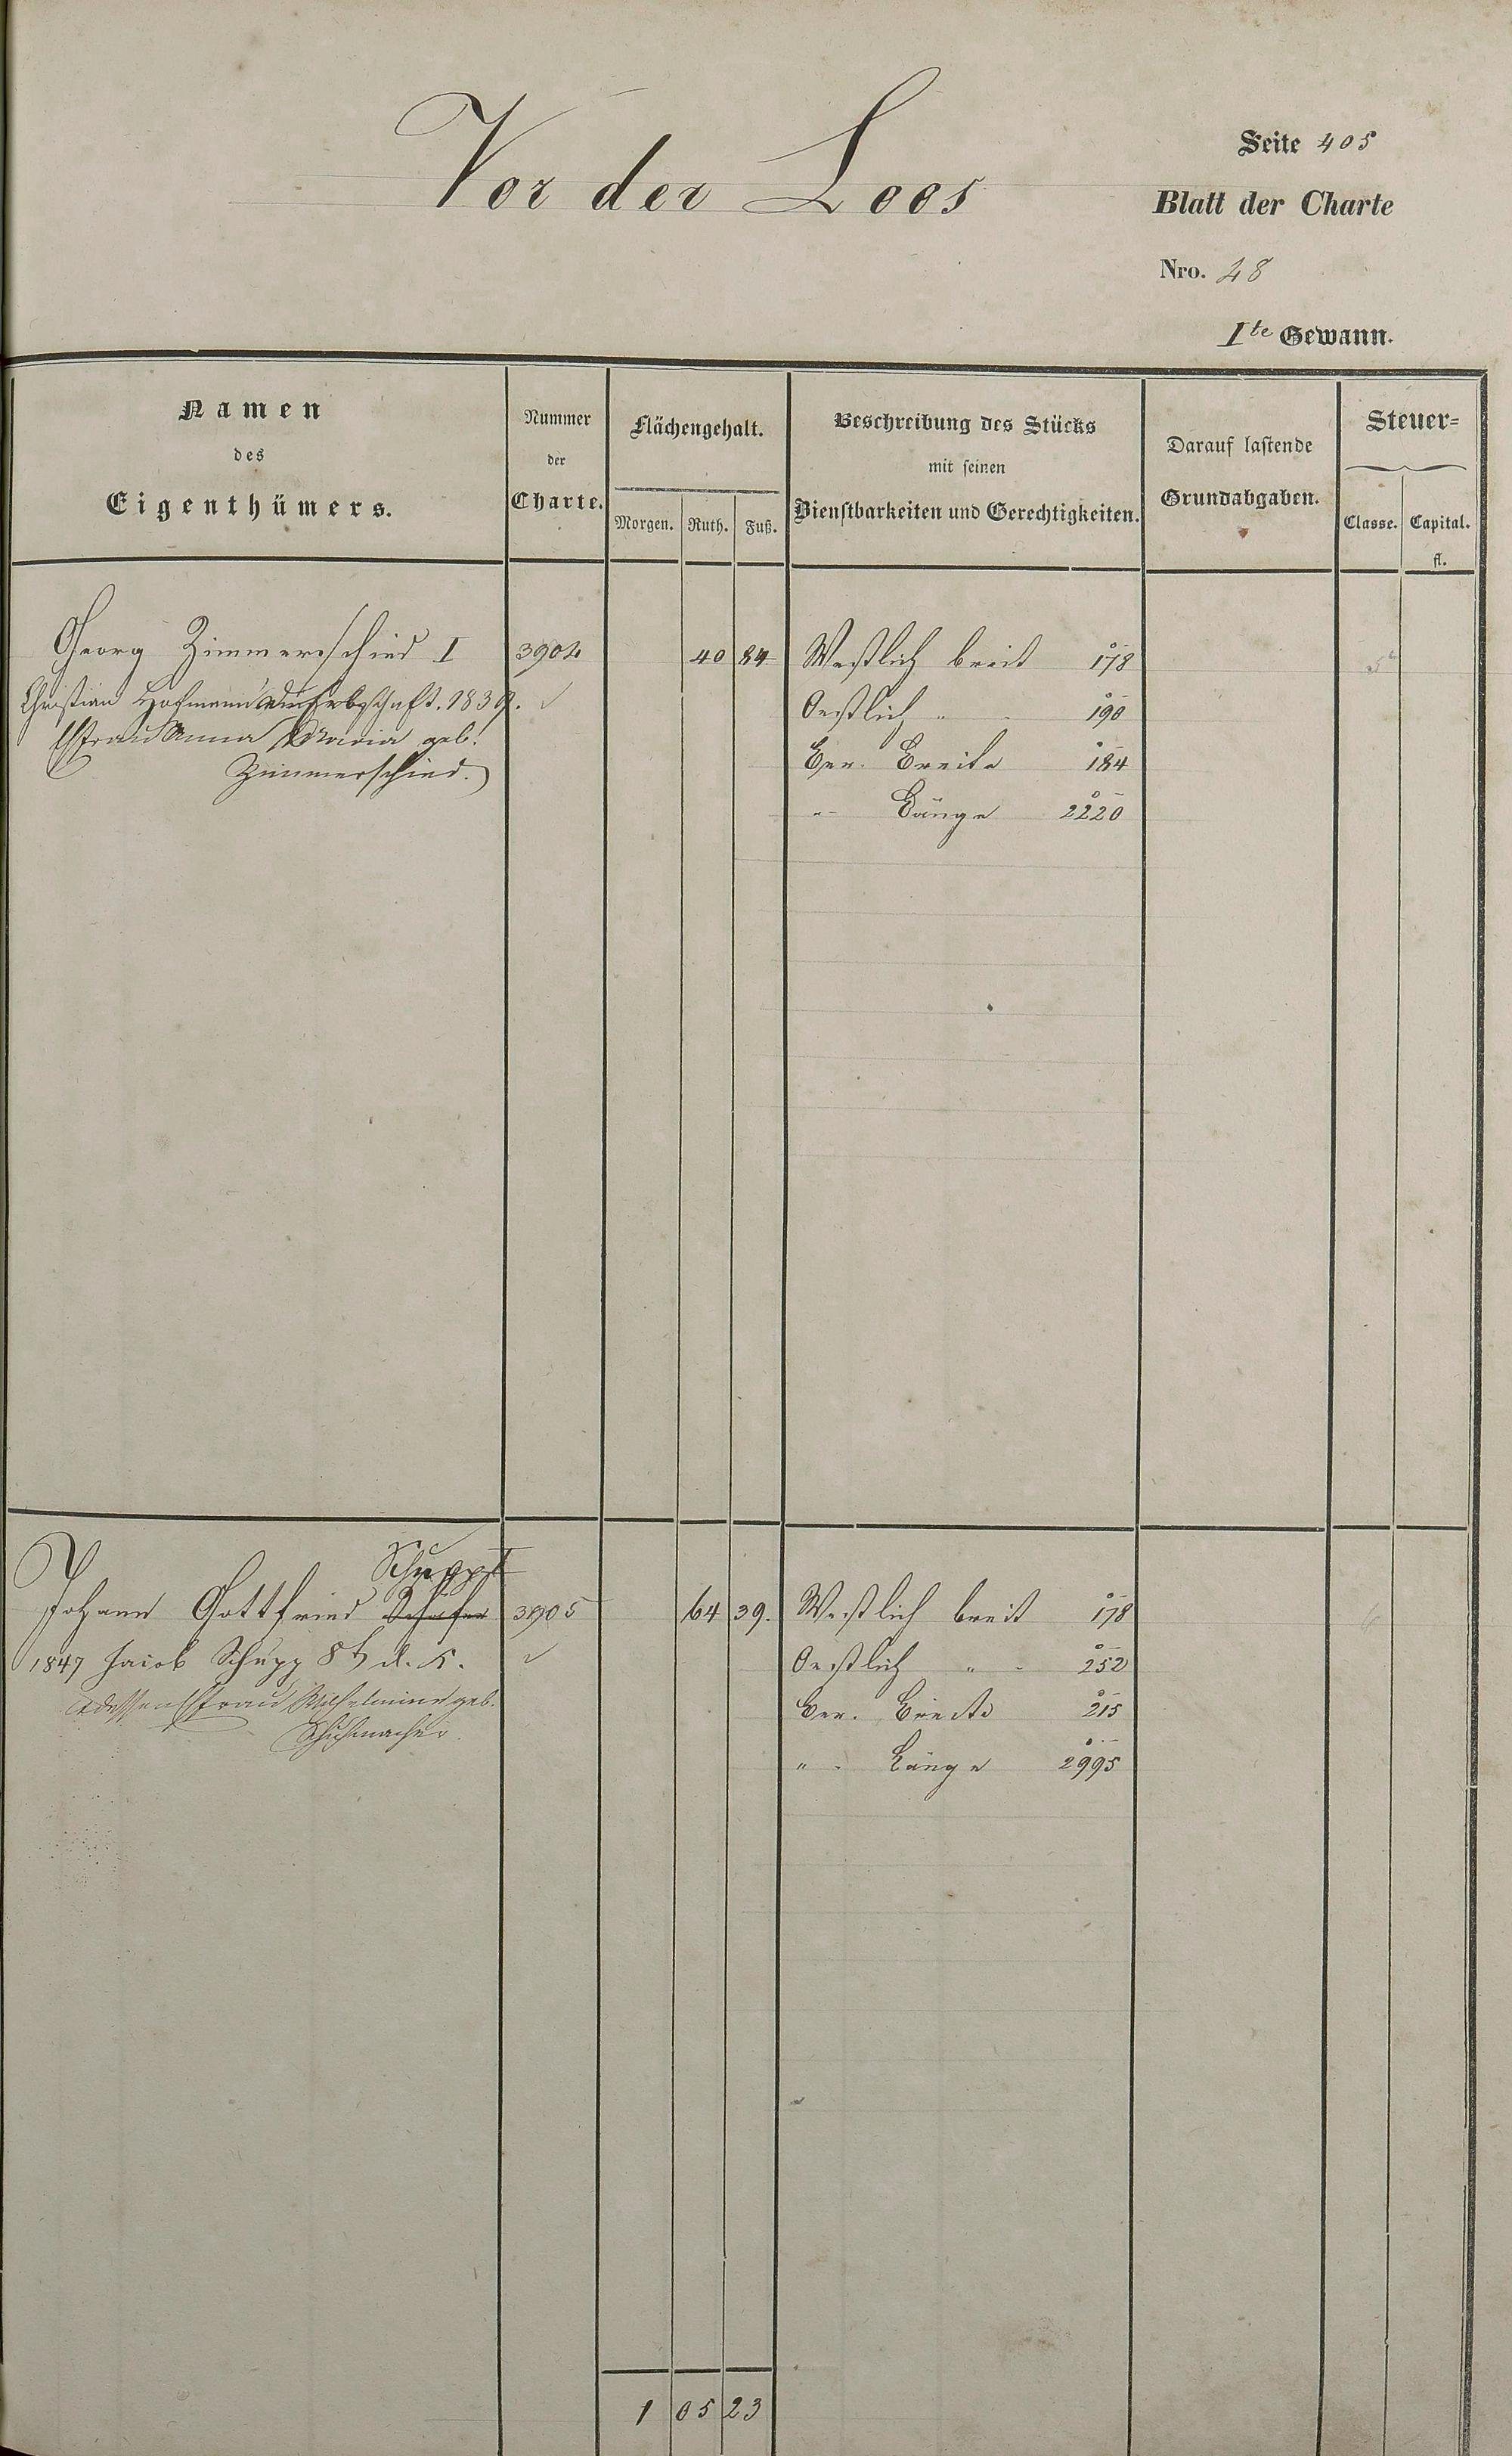 Vor der Loos
Seite 405
Blatt der Charte
Nro. 48
Ite Gewann.
Namen
des
Eigenthümers.
Nummer
der
Charte.
Flächengehalt.
Morgen. Ruth. Fuß.
Beschreibung des Stücks
mit seinen
Dienstbarkeiten und Gerechtigkeiten.
Darauf lastende
Grundabgaben.
Steuer=
Classe. Capital.
fl.
Georg Zimmerschied I 3904 40 84 Westlich breit 178
Christian Hofmann Erbschaft. 1839. Oestlich " 190
Ehefrau Anna Maria geb. Ber. Breite 184
Zimmerschied.
" Länge 2220
Schupp I
Johann Gottfried Schäfer 3905 64 39. Westlich breit 178
1847 Jacob Schupp 8t d. K. Oestlich " 252
dessen Ehefrau Wilhelmine geb. Ber. Breite 215
Schuhmacher.
" Länge 2995
1 05 23